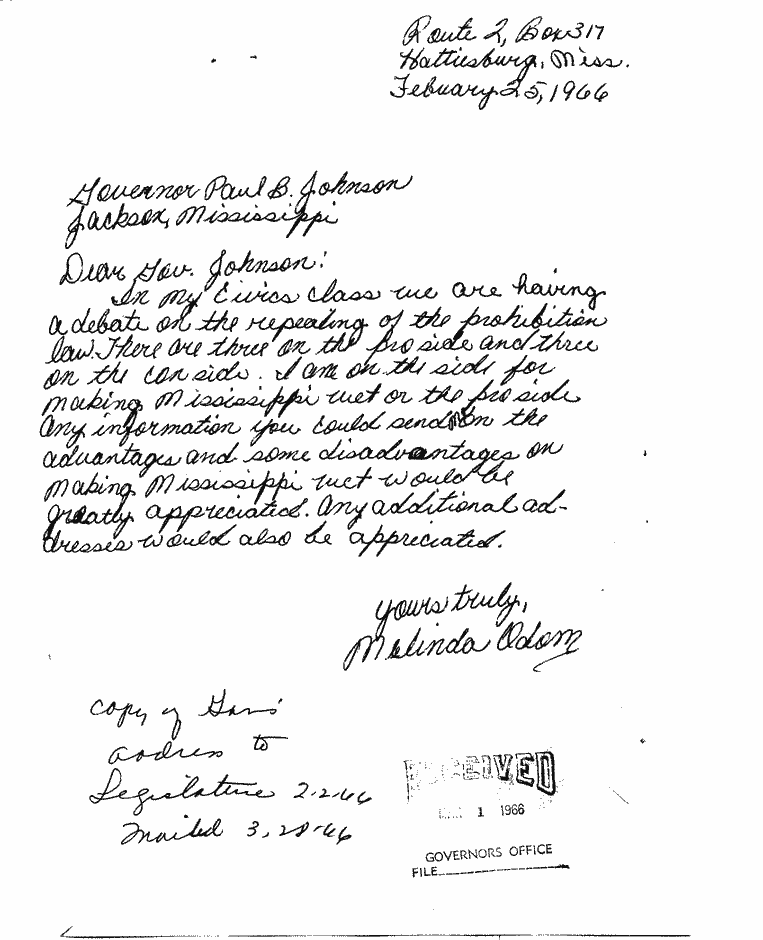 Route 2, Box 317
Hattiesburg, Miss.
Febuary 25, 1966
Governor Paul B. Johnson
Jackson, Mississippi
Dear Gov. Johnson:
In my Civics class we are having
a debate on the repealing of the prohibition
law. There are three on the pro side and three
on the con side. I am on the side for
making Mississippi wet or the pro side.
Any information you could send on the
advantages and some disadvantages on
making Mississippi wet would be
greatly appreciated. Any additional ad-
dresses would also be appreciated.
Yours truly,
Melinda Odom
copy of Gov's
address to
Legislature 2-2-66
mailed 3, 28-66
RECEIVED
1 1966
GOVERNORS OFFICE
FILE